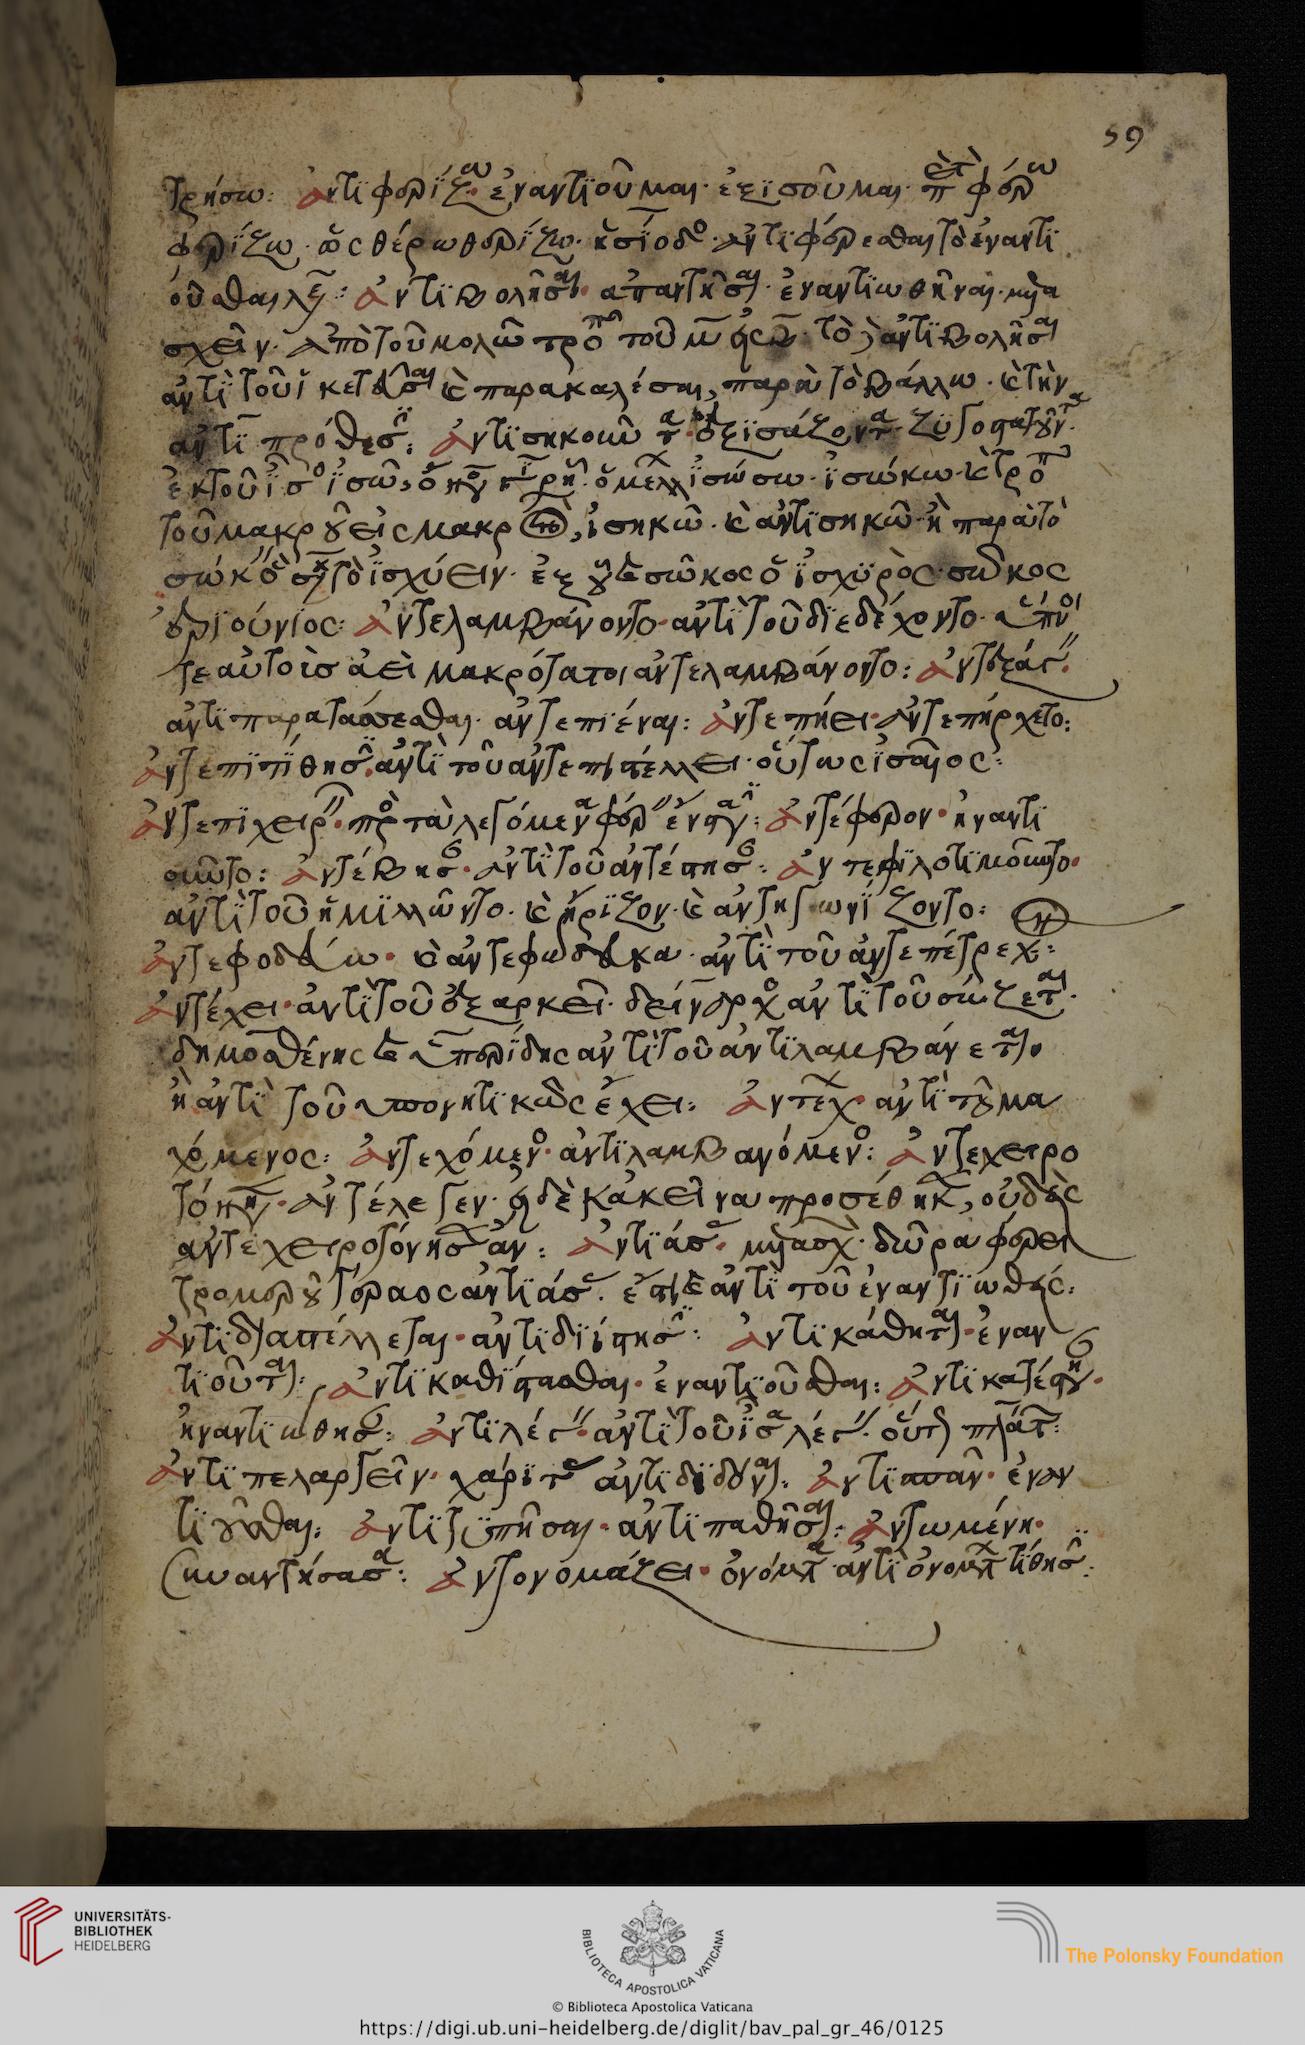 59
τρήσω: ἀντιφερίζω· ἐναντιοῦμαι· ἐξισοῦμαι· φέρω
φερίζω· ὡς θέρω θερίζω· ἀντιφέρεσθαι τὸ ἐναντι
οῦσθαι λέγει: ἀντιβολῆσαι· ἀπαντῆσαι· ἐναντιωθῆναι· μετα
σχεῖν· ἀπὸ τοῦ μολῶ τροπῇ τοῦ μ εἰς β· τὸ δὲ ἀντιβολῆσαι
ἀντὶ τοῦ ἱκετεῦσαι καὶ παρακαλέσαι, παρὰ τὸ βάλλω· καὶ τὴν
ἀντὶ πρόθεσιν: ἀντισηκοῦντα· ἐξισάζοντα· ζυγοστατοῦντα·
ἐκ τοῦ ἴσος ἰσῶ, ὁ μέλλων ἰσώσω· ἰσώκω· καὶ τροπῇ
τοῦ μακροῦ εἰς μακρὸν, ἰσηκῶ· καὶ ἀντισηκῶ· ἢ παρὰ τὸ
σωκῶ τὸ ἰσχύειν· ἐξ οὗ καὶ σῶκος ὁ ἰσχυρὸς· σῶκος
ἐριούνιος: ἀντελαμβάνοντο· ἀντὶ τοῦ διεδέχοντο·
τε αὐτοῖς ἀεὶ μακρότατοι ἀντελαμβάνοντο:
ἀντιπαρατάσσεσθαι· ἀντεπιέναι: ἀντεπῄει· ἀντεπήρχετο:
ἀντεπιτίθησιν· ἀντὶ τοῦ ἀντεπιστέλλει· οὕτως ἰσαῖος:
ἀντεπιχειρεῖν· πρὸς τὰ λεγόμενα φέρειν ἔνστασιν: ἀντέφερον· ἠναντι
οῦντο: ἀντέβησαν· ἀντὶ τοῦ ἀντέστησαν: ἀντεφιλοτιμοῦντο·
ἀντὶ τοῦ ἡμιλλῶντο· καὶ ἤριζον· καὶ ἀντηγωνίζοντο:
ἀντεφοδεύω· καὶ ἀντεφώδευκα· ἀντὶ τοῦ ἀντεπέτρεχον:
ἀντέχει· ἀντὶ τοῦ ἐξαρκεῖ· δείναρχος ἀντὶ τοῦ σώζεται·
δημοσθένης καὶ εὐριπίδης ἀντὶ τοῦ ἀντιλαμβάνεται·
ἢ ἀντὶ τοῦ ἔχει: ἀντέχων· ἀντὶ τοῦ μα
χόμενος: ἀντεχόμενος· ἀντιλαμβανόμενος: ἀντεχειρο
τόνησεν· ἀντέλεγεν· εἰ δὲ κἀκεῖνα προσέθηκεν, οὐδεὶς
ἀντεχειροτόνησεν ἄν: ἀντιάσας· μετασχὼν· δῶρα φέρει
τρομεροῦ γήραος ἀντιάσας· ἔστι καὶ ἀντὶ τοῦ ἐναντιωθείς:
ἀντιδιαστέλλεται· ἀντιδιίστησιν: ἀντικάθηται· ἐναν
τιοῦται: ἀντικαθίστασθαι· ἐναντιοῦσθαι: ἀντικατέστησαν·
ἠναντιώθησαν: ἀντιλέγειν· ἀντὶ τοῦ ἴσα λέγειν· οὕτω πλάτων:
ἀντιπελαργεῖν· χάριτας ἀντιδιδόναι: ἀντισπᾶν· ἐναν
τιοῦσθαι: ἀντιτυπῆσαι· ἀντιπαθῆσαι: ἀντωμένη·
συναντήσασα: ἀντονομάζει· ὀνόματα ἀντὶ ὀνομάτων τίθησιν:
UNIVERSITÄTS-
BIBLIOTHEK
HEIDELBERG
BIBLIOTECA APOSTOLICA VATICANA
The Polonsky Foundation
© Biblioteca Apostolica Vaticana
https://digi.ub.uni-heidelberg.de/diglit/bav_pal_gr_46/0125